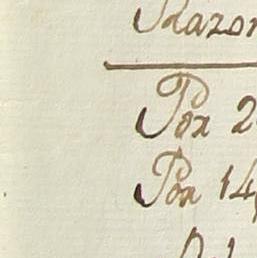 Razon
Por 2
Por 14